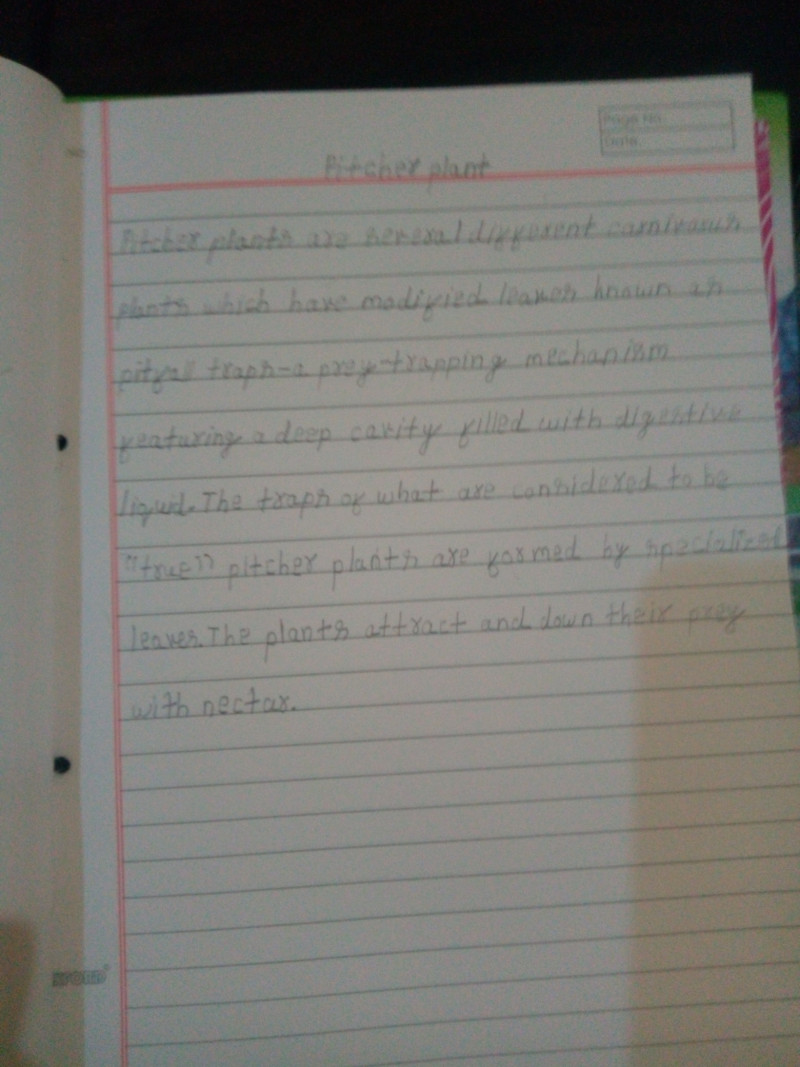 Page No.
Date.
Pitcher plant
Pitcher plants are several different carnivorus
plants which have modified leaves known as
pitfall traps-a prey-trapping mechanism
featuring a deep cavity filled with digestive
liquid. The traps of what are considered to be
"true" pitcher plants are formed by specialized
leaves. The plants attract and down their prey
with nectar.